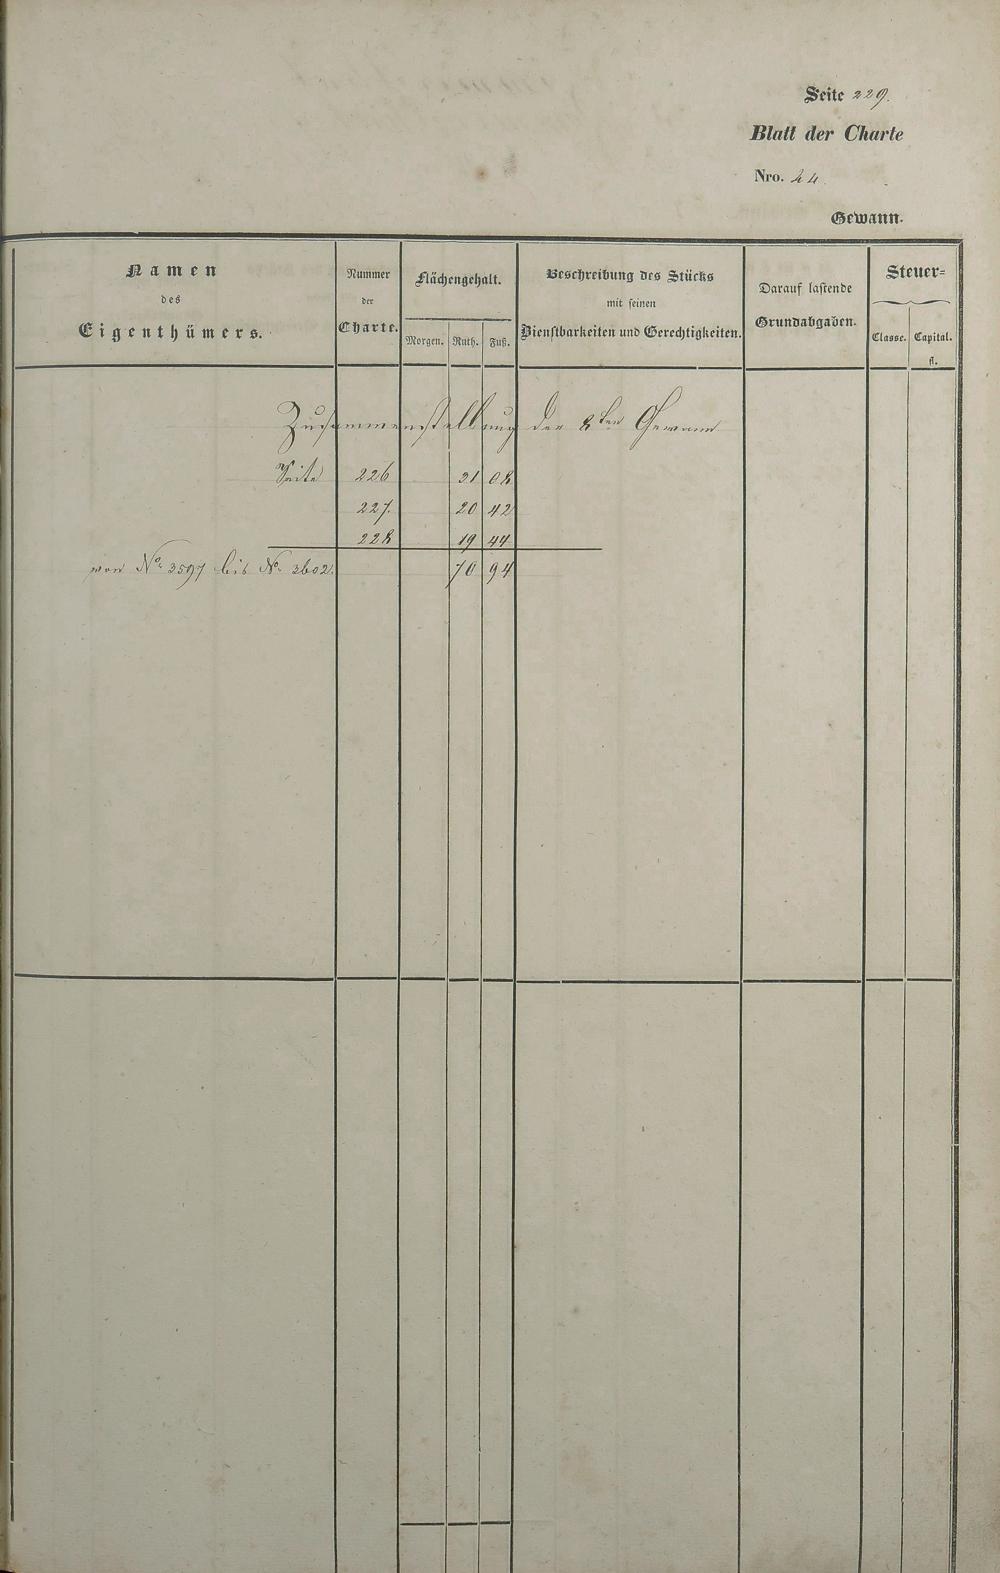 Seite 229.
Blatt der Charte
Nro. 24
Gewann.
Namen
des
Eigenthümers.
Nummer
der
Charte.
Flächengehalt.
Morgen. Ruth. Fuß.
Beschreibung des Stücks
mit seinen
Dienstbarkeiten und Gerechtigkeiten.
Darauf lastende
Grundabgaben.
Steuer=
Classe. Capital.
fl.
Zusammenstellung der 8ten Gewann
Seite 226 31 08
227. 20 42
228 19 44
von No. 3597 bis No. 3602. 70 94